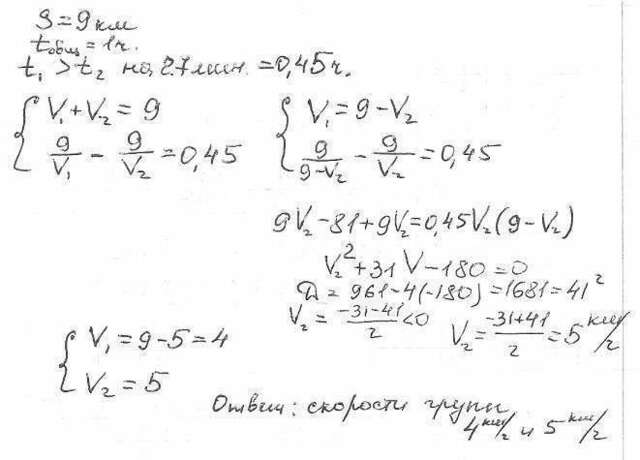 S = 9 км
tобщ = 1ч.
t₁ > t₂ на 27 мин. = 0,45ч.
{ V₁ + V₂ = 9
9/V₁ − 9/V₂ = 0,45
{ V₁ = 9 − V₂
9/(9−V₂) − 9/V₂ = 0,45
9V₂ − 81 + 9V₂ = 0,45V₂(9 − V₂)
V₂² + 31V − 180 = 0
D = 961 − 4(−180) = 1681 = 41²
V₂ = (−31−41)/2 < 0 V₂ = (−31+41)/2 = 5 км/ч
{ V₁ = 9 − 5 = 4
V₂ = 5
Ответ: скорости групп
4 км/ч и 5 км/ч